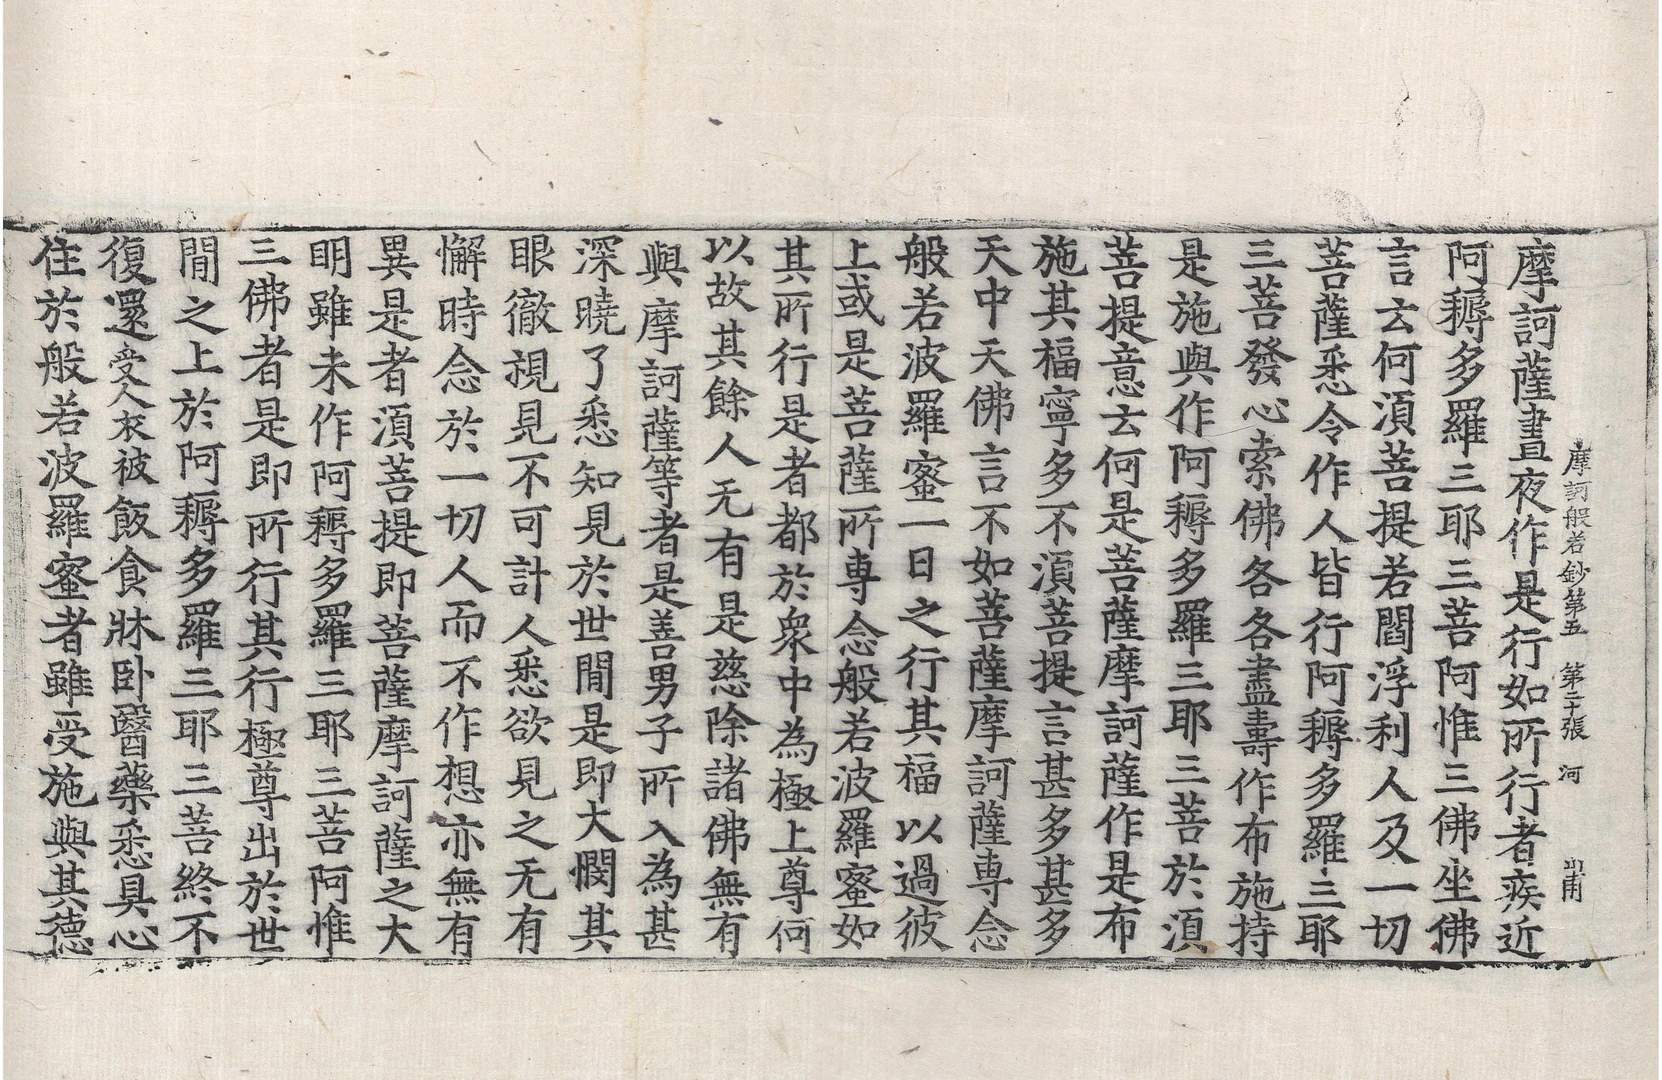 摩訶般若鈔第五　第二十張　河　出甫
摩訶薩晝夜作是行如所行者疾近
阿耨多羅三耶三菩阿惟三佛坐佛
言云何湏菩提若閻浮利人及一切
菩薩悉令作人皆行阿耨多羅三耶
三菩發心索佛各各盡壽作布施持
是施與作阿耨多羅三耶三菩於湏
菩提意云何是菩薩摩訶薩作是布
施其福寧多不湏菩提言甚多甚多
天中天佛言不如菩薩摩訶薩專念
般若波羅蜜一日之行其福以過彼
上或是菩薩所專念般若波羅蜜如
其所行是者都於衆中為極上尊何
以故其餘人无有是慈除諸佛無有
與摩訶薩等者是善男子所入為甚
深曉了悉知見於世閒是即大憫其
眼徹視見不可計人悉欲見之无有
懈時念於一切人而不作想亦無有
異是者湏菩提即菩薩摩訶薩之大
明雖未作阿耨多羅三耶三菩阿惟
三佛者是即所行其行極尊出於世
閒之上於阿耨多羅三耶三菩終不
復還受人衣被飯食牀卧醫藥悉具心
住於般若波羅蜜者雖受施與其德